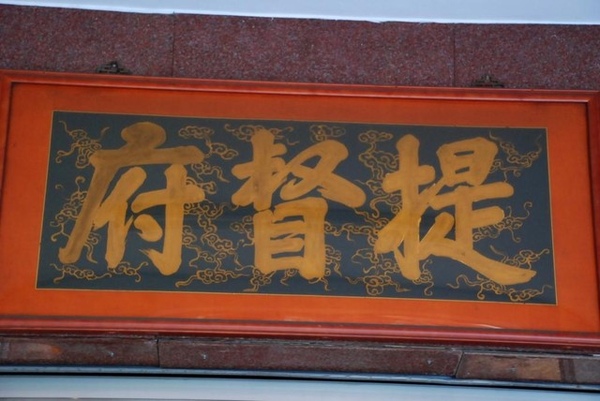 提督府